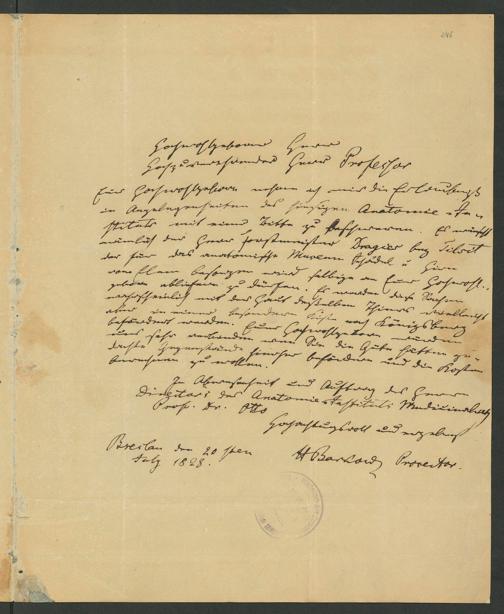 246
Hochwohlgeborner Herr
Hochzuverehrender Herr Professor
Euer Hochwohlgeboren nehme ich mir die Erlaubniß
in Angelegenheiten des hiesigen Anatomie-In-
stituts mit einer Bitte zu beschweren. Es wünscht
nämlich der Herr Forstmeister bey Tilsit
der für das anatomische Museum Schädel u Hirn
von Elenn besorgen wird selbige an Euer Hochwohl-
geboren abliefern zu dürfen. Es werden diese Sachen
wahrscheinlich mit der Haut desselben Thieres vielleicht
aber in einer besondern Kiste nach Königsberg
befördert werden. Euer Hochwohlgeboren würden
uns sehr verbinden wenn Sie die Güte hätten ge-
dachte Gegenstände hierher befördern und die Kosten
zu wollen.
In Abwesenheit und Auftrag des Herrn
Direktors des Anatomie-Instituts Medicinalrath
Prof. Dr. Otto
Hochachtungsvoll und ergebenst
Breslau den 20sten
July 1828.
H Barkow Prosector.